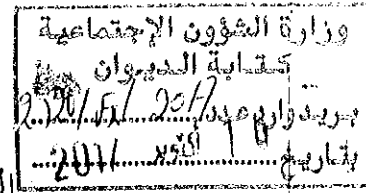 وزارة الشؤون الإجتماعية
كتابة الديوان
بريد وارد عدد 2017
بتاريخ 19 أكتوبر 2017